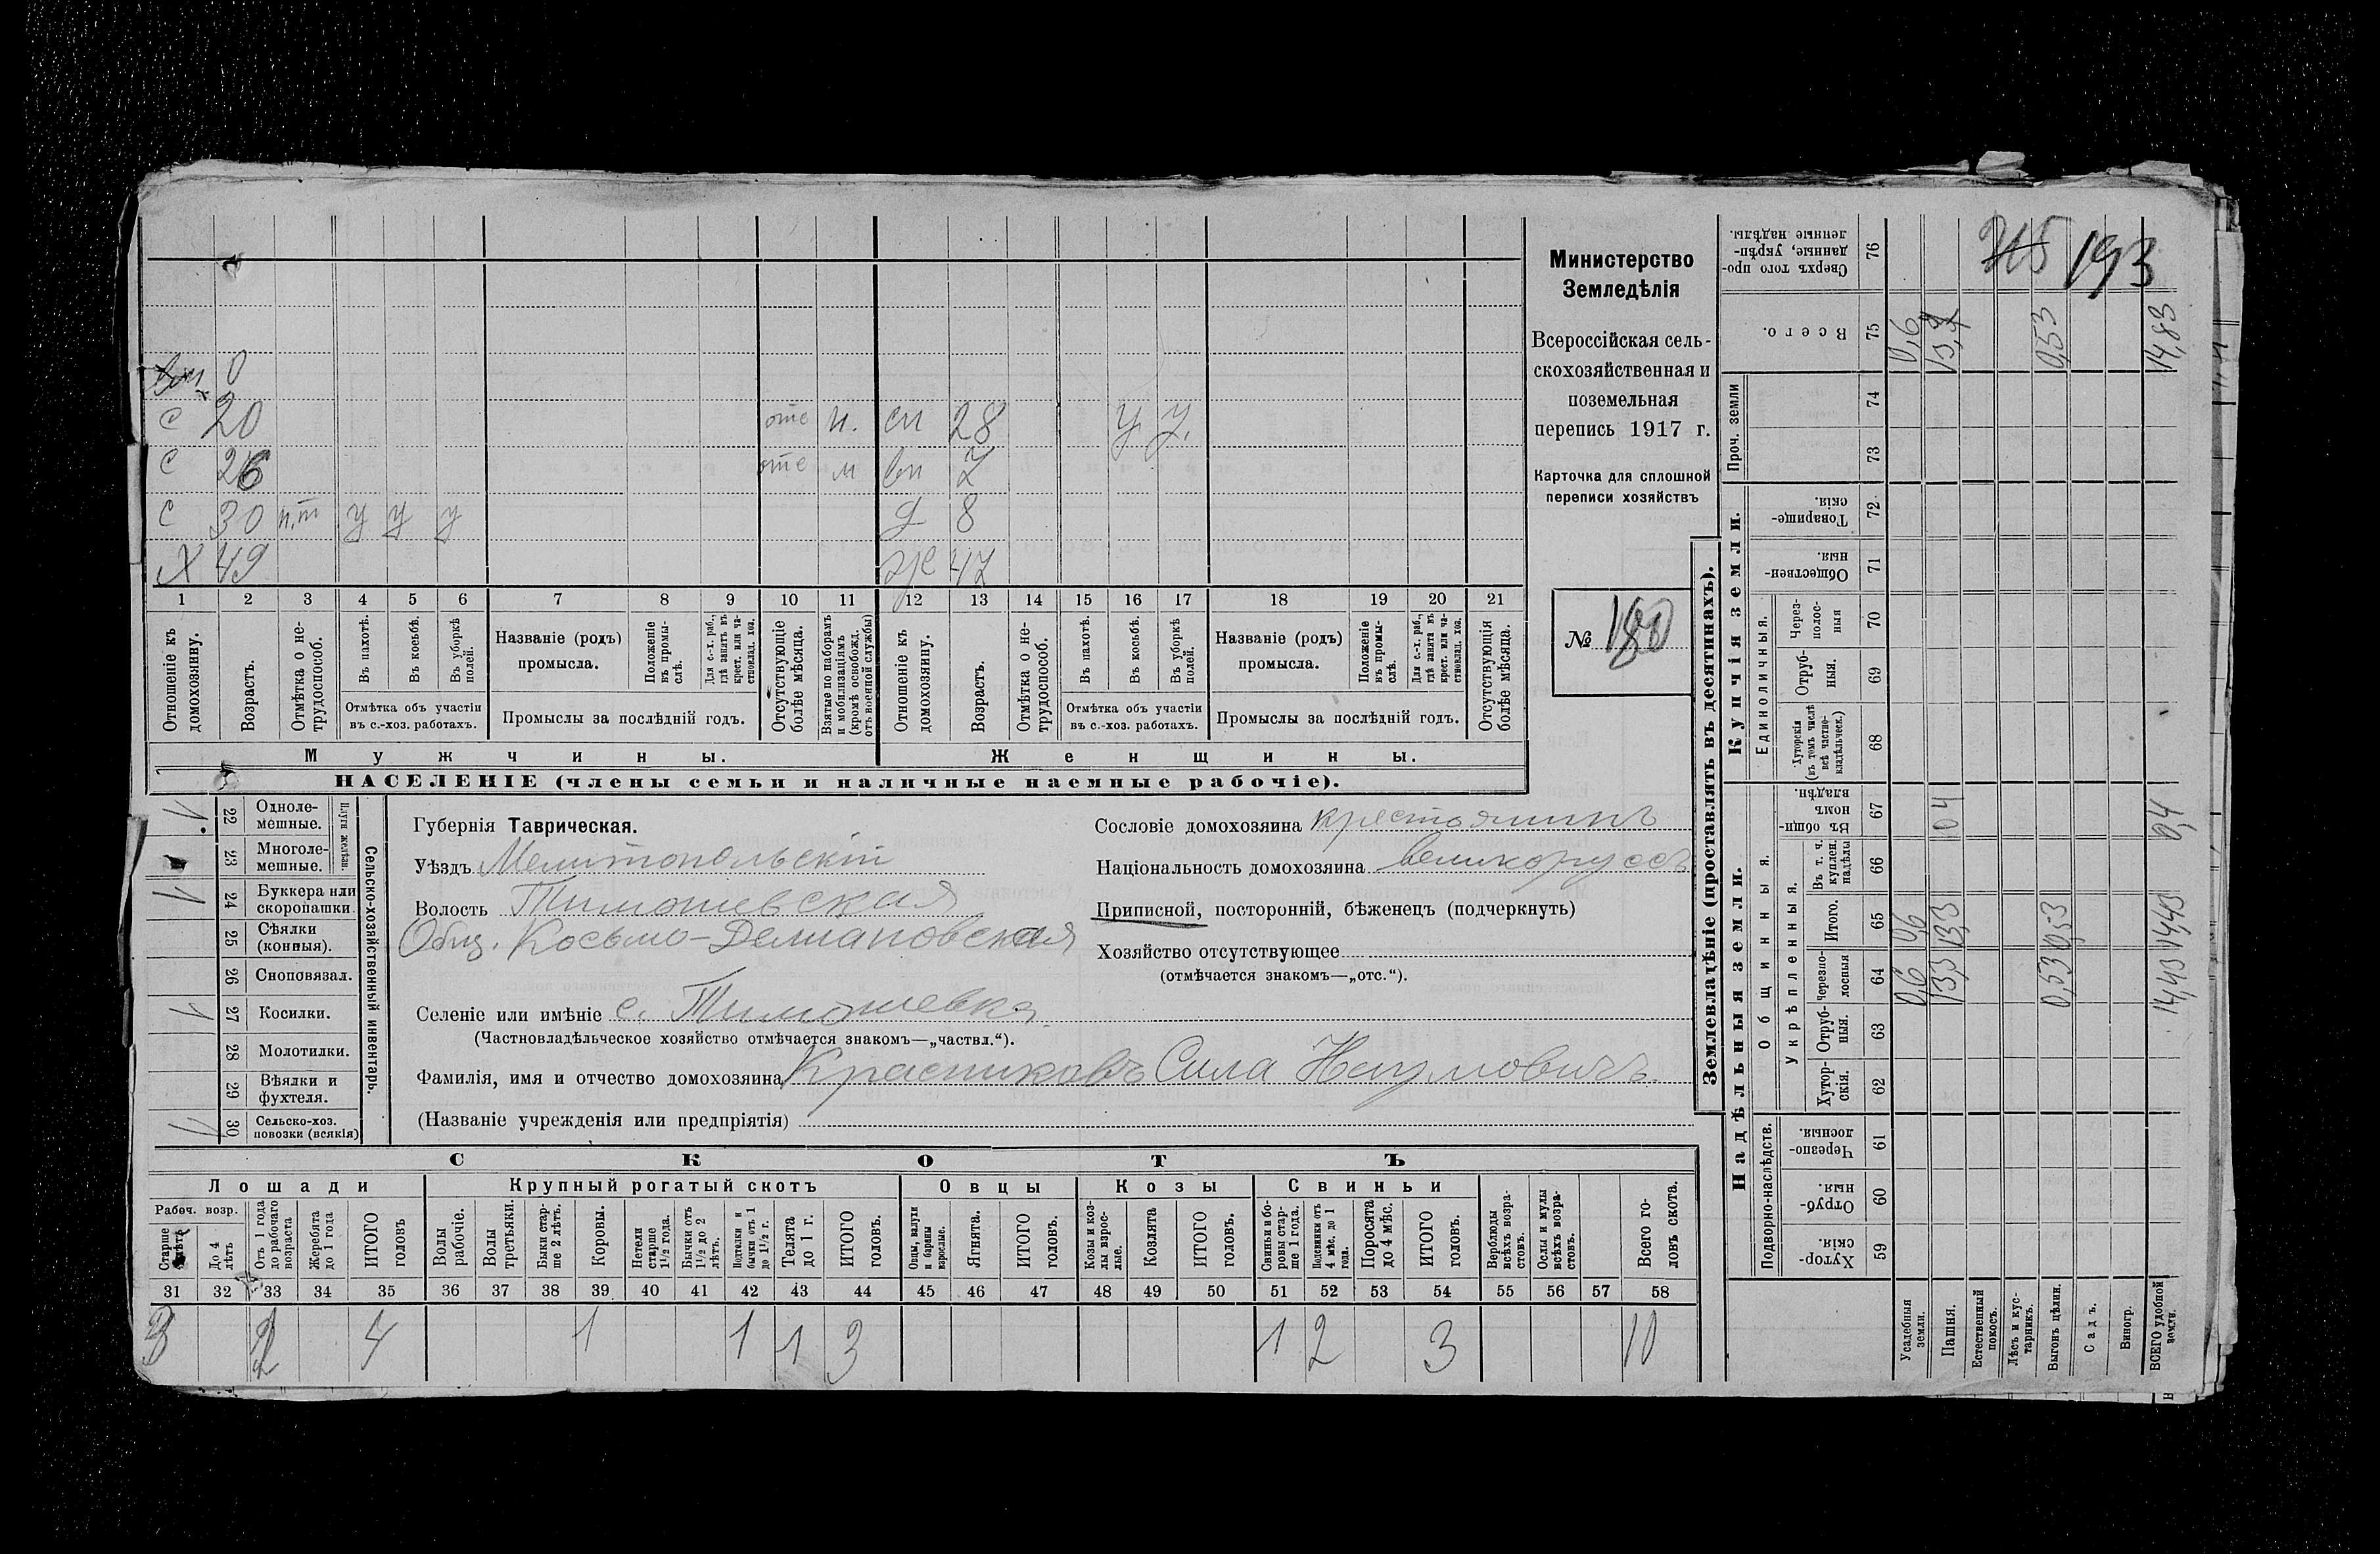 Министерство
Земледѣлія
Всероссійская сель-
скохозяйственная и
поземельная
перепись 1917 г.
Карточка для сплошной
переписи хозяйствъ
№ 180
193
0
С 20 отс н. сн 28 У У.
С 26 отс м вн 7
С 30 н.т у у у д 8
Х 49 ж 47
1 2 3 4 5 6 7 8 9 10 11 12 13 14 15 16 17 18 19 20 21
Отношеніе къ домохозяину.
Возрастъ.
Отмѣтка о не-трудоспособ.
Въ пахотѣ.
Въ косьбѣ.
Въ уборкѣ полей.
Отмѣтка объ участіи въ с.-хоз. работахъ.
Названіе (родъ) промысла.
Положеніе въ промы-слѣ.
Для с.-х. раб., гдѣ занятъ въ крест. или ча-стновлад. хоз.
Промыслы за послѣдній годъ.
Отсутствующіе болѣе мѣсяца.
Взятые по наборамъ и мобилизаціямъ (кромѣ освобожд. отъ военной службы)
Отношеніе къ домохозяину.
Возрастъ.
Отмѣтка о не-трудоспособ.
Въ пахотѣ.
Въ косьбѣ.
Въ уборкѣ полей.
Отмѣтка объ участіи въ с.-хоз. работахъ.
Названіе (родъ) промысла.
Положеніе въ промы-слѣ.
Для с.-х. раб., гдѣ занята въ крест. или ча-стновлад. хоз.
Промыслы за послѣдній годъ.
Отсутствующія болѣе мѣсяца.
Мужчины. Женщины.
НАСЕЛЕНІЕ (члены семьи и наличные наемные рабочіе).
Сельско-хозяйственный инвентарь.
Плуги желѣзн.
1 22 Одноле-мешные.
23 Многоле-мешные.
1 24 Буккера или скоропашки.
25 Сѣялки (конныя).
26 Сноповязал.
1 27 Косилки.
28 Молотилки.
29 Вѣялки и фухтеля.
11 30 Сельско-хоз. повозки (всякія)
Губернія Таврическая.
Уѣздъ Мелитопольскій
Волость Тимошевская
Общ. Косьмо-Демьановская
Селеніе или имѣніе с. Тимошевка.
(Частновладѣльческое хозяйство отмѣчается знакомъ—„частвл.“).
Фамилія, имя и отчество домохозяина Красниковъ Сила Наумовичъ.
(Названіе учрежденія или предпріятія)
Сословіе домохозяина крестьянинъ
Національность домохозяина великоруссъ
Приписной, посторонній, бѣженецъ (подчеркнуть)
Хозяйство отсутствующее
(отмѣчается знакомъ—„отс.“).
СКОТЪ
Лошади Крупный рогатый скотъ Овцы Козы Свиньи
Рабоч. возр.
Старше лѣтъ
До 4 лѣтъ
Отъ 1 года до рабочаго возраста
Жеребята до 1 года
ИТОГО головъ
Волы рабочіе.
Волы третьяки.
Быки стар-ше 2 лѣтъ.
Коровы.
Нетели старше 1½ года.
Бычки отъ 1½ до 2 лѣтъ.
Подтелки и бычки отъ 1 до 1½ г.
Телята до 1 г.
ИТОГО головъ.
Овцы, валухи и бараны взрослые.
Ягнята.
ИТОГО головъ.
Козы и коз-лы взрос-лые.
Козлята
ИТОГО головъ.
Свиньи и бо-ровы стар-ше 1 года.
Подсвинки отъ 4 мѣс. до 1 года.
Поросята до 4 мѣс.
ИТОГО головъ.
Верблюды всѣхъ возра-стовъ.
Ослы и мулы всѣхъ возра-стовъ.
Всего го-ловъ скота.
31 32 33 34 35 36 37 38 39 40 41 42 43 44 45 46 47 48 49 50 51 52 53 54 55 56 57 58
4 1 1 1 3 1 2 3 10
Землевладѣніе (проставлять въ десятинахъ).
Надѣльныя земли. Купчія земли. Проч. земли
Подворно-наслѣдств. Общинныя. Единоличныя.
Укрѣпленныя.
Хутор-скія. 59
Отруб-ныя. 60
Черезпо-лосныя. 61
Хутор-скія. 62
Отруб-ныя. 63
Черезпо-лосныя 64
Итого. 65
Въ т. ч. куплен. надѣлы 66
Въ общи-номъ владѣн. 67
Хуторскія (въ томъ числѣ всѣ частно-владѣльческ.) 68
Отруб-ныя. 69
Через-полос-ныя 70
Обществен-ныя. 71
Товарище-скія. 72
73
74
Всего. 75
Сверхъ того про-данные, укрѣп-ленные надѣлы. 76
Усадебныя земли. 0,6 0,6 0,6
Пашня. 13,3 13,3 04
Естественный покосъ.
Лѣсъ и кус-тарникъ.
Выгонъ цѣлин. 0,53 0,53 0,53
Садъ.
Виногр.
ВСЕГО удобной земли. 14,43 14,43 0,4 14,83